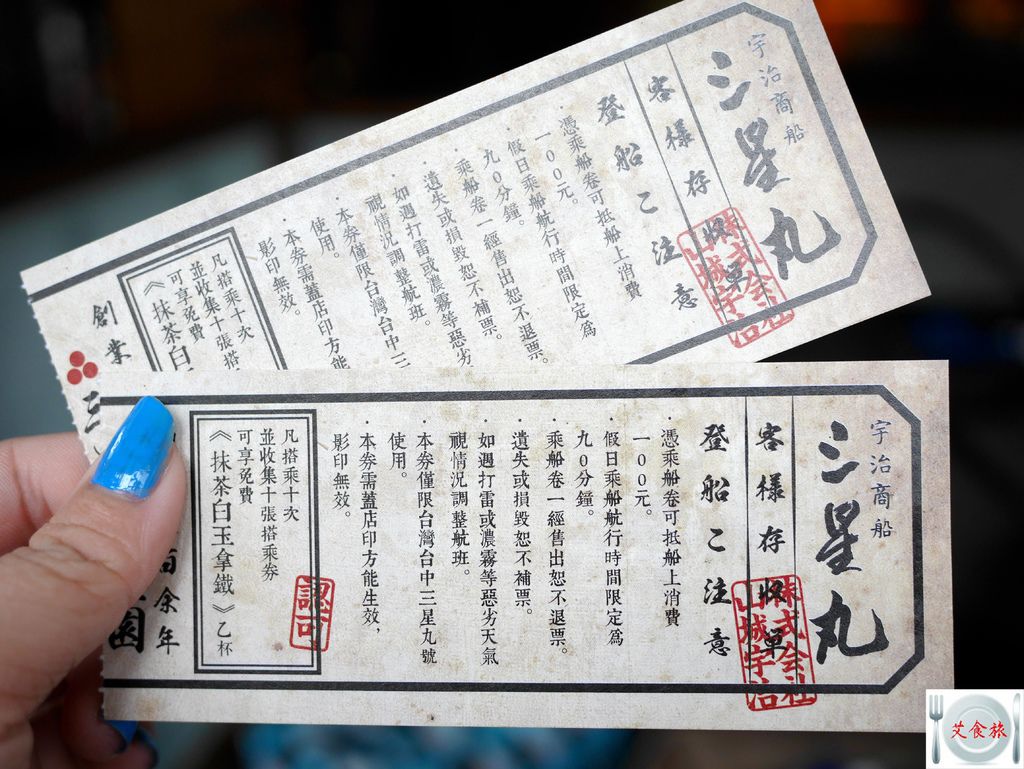 宇治商船
三星丸
客樣存收單
株式会社
山城宇治
登船こ注意
·憑乘船卷可抵船上消費
一00元。
·假日乘船航行時間限定為
九0分鐘。
·乘船卷一經售出恕不退票。
·遺失或損毀恕不補票。
·如遇打雷或濃霧等惡劣
視情況調整航班。
·本券僅限台灣台中三
使用。
·本券需蓋店印方能
影印無效。
凡搭乘十次
並收集十張搭
可享免費
《抹茶白
創業
三
宇治商船
三星丸
客樣存收單
株式会社
山城宇治
登船こ注意
·憑乘船卷可抵船上消費
一00元。
·假日乘船航行時間限定為
九0分鐘。
·乘船卷一經售出恕不退票。
·遺失或損毀恕不補票。
·如遇打雷或濃霧等惡劣天氣
視情況調整航班。
·本券僅限台灣台中三星丸號
使用。
·本券需蓋店印方能生效，
影印無效。
認可
凡搭乘十次
並收集十張搭乘券
可享免費
《抹茶白玉拿鐵》乙杯
百余年
園
艾食旅